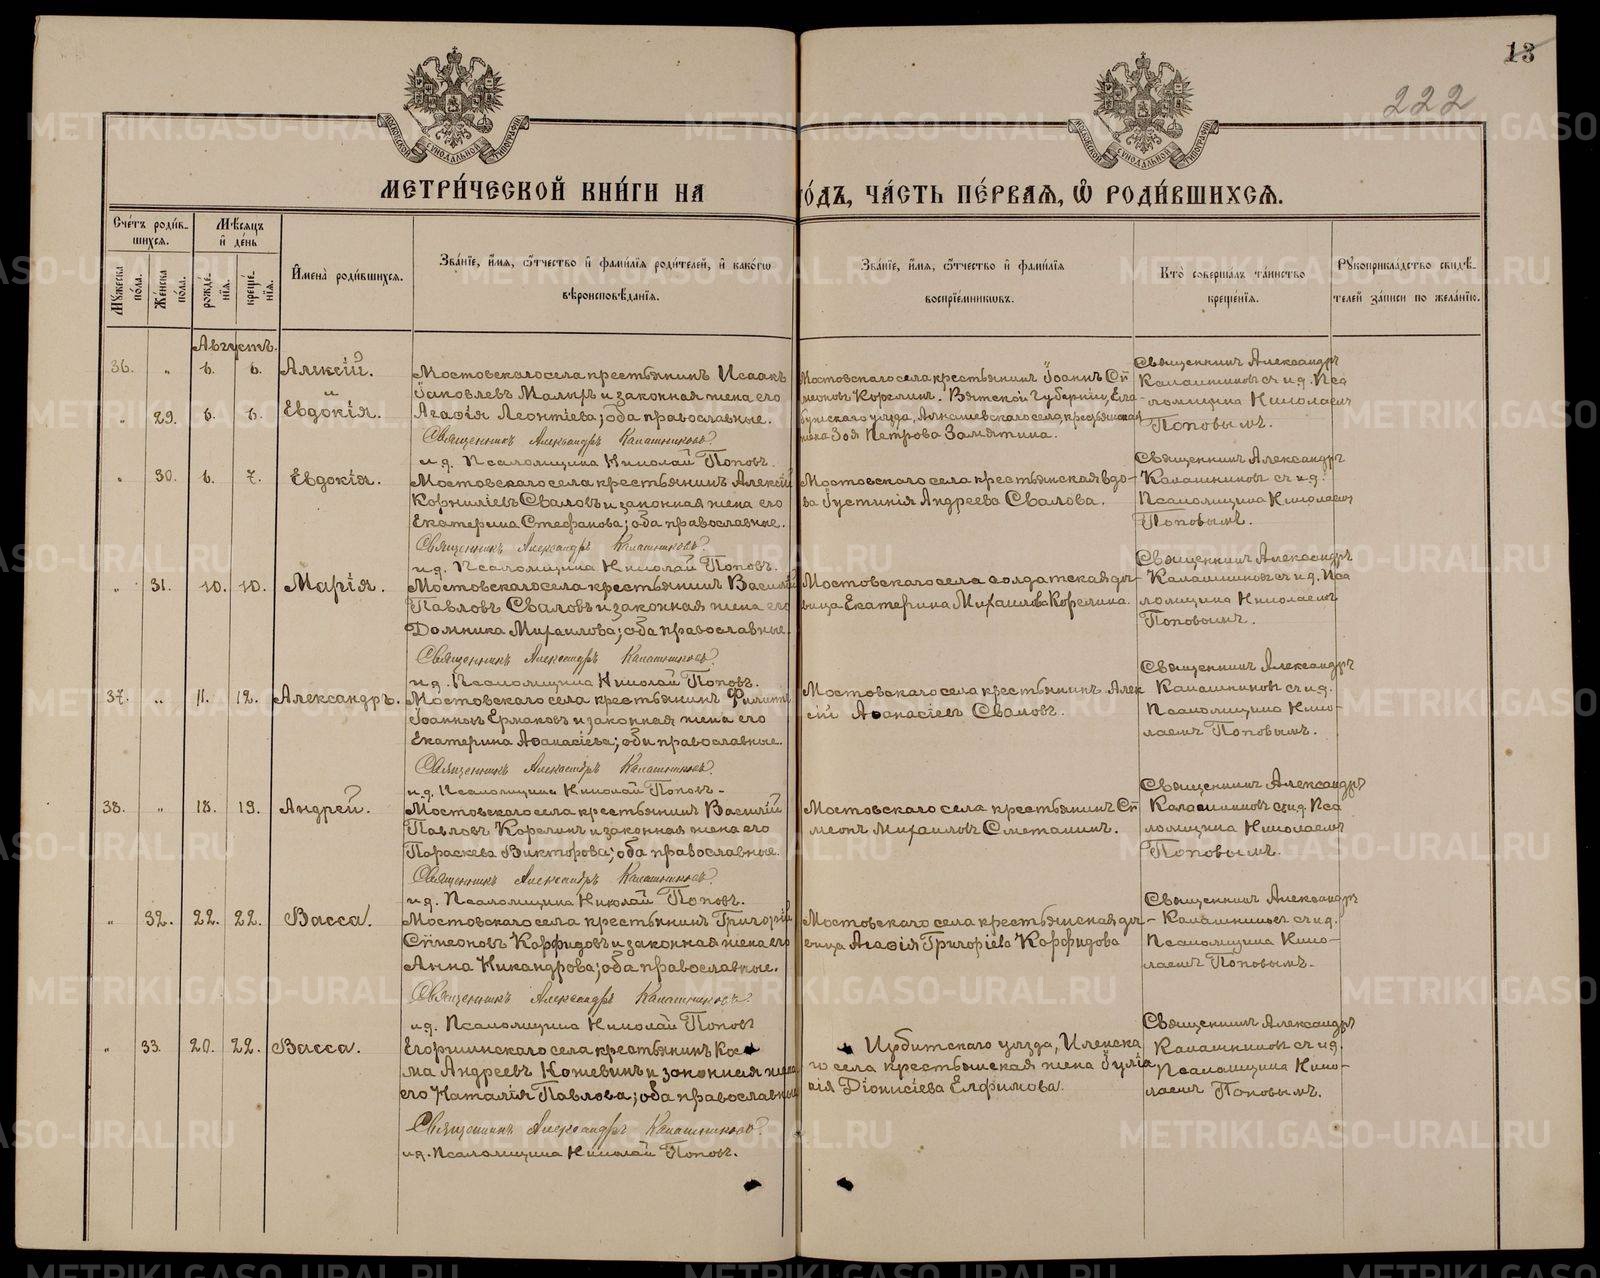 13
222
МОСКОВСКОЙ СѴНОДАЛЬНОЙ ТИПОГРАФІИ
МОСКОВСКОЙ СѴНОДАЛЬНОЙ ТИПОГРАФІИ
МЕТРИ́ЧЕСКОЙ КНИ́ГИ НА
ОДЪ, ЧА́СТЬ ПЕ́РВАѦ, Ѡ҆ РОДИ́ВШИХСѦ.
Сче́тъ роди́в-
шихсѧ.
Мꙋ́жеска по́ла.
Же́нска по́ла.
Мѣ́сѧцъ
и҆ де́нь
рожде́-
нїѧ.
креще́-
нїѧ.
И҆мена̀ роди́вшихсѧ.
Зва́нїе, и҆́мѧ, ѻ҆́тчество и҆ фами́лїѧ роди́телей, и҆ како́гѡ
вѣроисповѣ́данїѧ.
Зва́нїе, и҆́мѧ, ѻ҆́тчество и҆ фами́лїѧ
воспрїе́мникѡвъ.
Кто̀ соверша́лъ та́инство
креще́нїѧ.
Рꙋкоприкла́дство свидѣ́-
телей за́писи по жела́нїю.
Августъ.
36. „ 6. 6. Алексій.
и
„ 29. 6. 6. Евдокія.
Мостовскаго села крестьянинъ Исаакъ
Іаковлевъ Малыгъ и законная жена его
Агаѳія Леонтіева; оба православные.
Священникъ Александръ Калашниковъ
и д. Псаломщика Николай Поповъ.
Мостовскаго села крестьянинъ Іоаннъ Си
меоновъ Корелинъ. Вятской губерніи, Ела
бужскаго уѣзда, села, крестьянская
Зоя Петрова Замятина.
Священникъ Александръ
Калашниковъ съ и д. Пса
ломщика Николаемъ
Поповымъ.
„ 30. 6. 7. Евдокія.
Мостовскаго села крестьянинъ Алексій
Корниліевъ Сваловъ и законная жена его
Екатерина Стефанова; оба православные.
Священникъ Александръ Калашниковъ
и д. Псаломщика Николай Поповъ.
Мостовскаго села крестьянская вдо-
ва Іустинія Андреева Свалова.
Священникъ Александръ
Калашниковъ съ и д.
Псаломщика Николаемъ
Поповымъ.
„ 31. 10. 10. Марія.
Мостовскаго села крестьянинъ Василій
Павловъ Сваловъ и законная жена его
Домника Михаилова; оба православные.
Священникъ Александръ Калашниковъ
и д. Псаломщика Николай Поповъ.
Мостовскаго села солдатская дѣ-
вица Екатерина Михаилова Корелина.
Священникъ Александръ
Калашниковъ съ и д. Пса
ломщика Николаемъ
Поповымъ.
37. „ 11. 12. Александръ.
Мостовскаго села крестьянинъ Филиппъ
Іоанновъ Ермаковъ и законная жена его
Екатерина Аѳанасіева; оба православные.
Священникъ Александръ Калашниковъ
и д. Псаломщика Николай Поповъ.
Мостовскаго села крестьянинъ Алек
сій Аѳанасіевъ Сваловъ.
Священникъ Александръ
Калашниковъ съ и д.
Псаломщика Нико-
лаемъ Поповымъ.
38. „ 18. 19. Андрей.
Мостовскаго села крестьянинъ Василій
Павловъ Корелинъ и законная жена его
Параскева Викторова; оба православные.
Священникъ Александръ Калашниковъ
и д. Псаломщика Николай Поповъ.
Мостовскаго села крестьянинъ Си
меонъ Михаиловъ Сметанинъ.
Священникъ Александръ
Калашниковъ съ и д. Пса
ломщика Николаемъ
Поповымъ.
„ 32. 22. 22. Васса.
Мостовскаго села крестьянинъ Григорій
Симеоновъ Корфидовъ и законная жена его
Анна Никандрова; оба православные.
Священникъ Александръ Калашниковъ
и д. Псаломщика Николай Поповъ
Мостовскаго села крестьянская дѣ-
вица Агаѳія Григоріева Корфидова
Священникъ Александръ
Калашниковъ съ и д.
Псаломщика Нико-
лаемъ Поповымъ.
„ 33. 20. 22. Васса.
Егоршинскаго села крестьянинъ Кос
ма Андреевъ Кожевинъ и законная жена
его Наталія Павлова; оба православные
Священникъ Александръ Калашниковъ
и д. Псаломщика Николай Поповъ.
Ирбитскаго уѣзда, Иленска
го села крестьянская жена Іуліа
нія Діонисіева Елфимова.
Священникъ Александръ
Калашниковъ съ и д.
Псаломщика Нико-
лаемъ Поповымъ.
METRIKI.GASO-URAL.RU